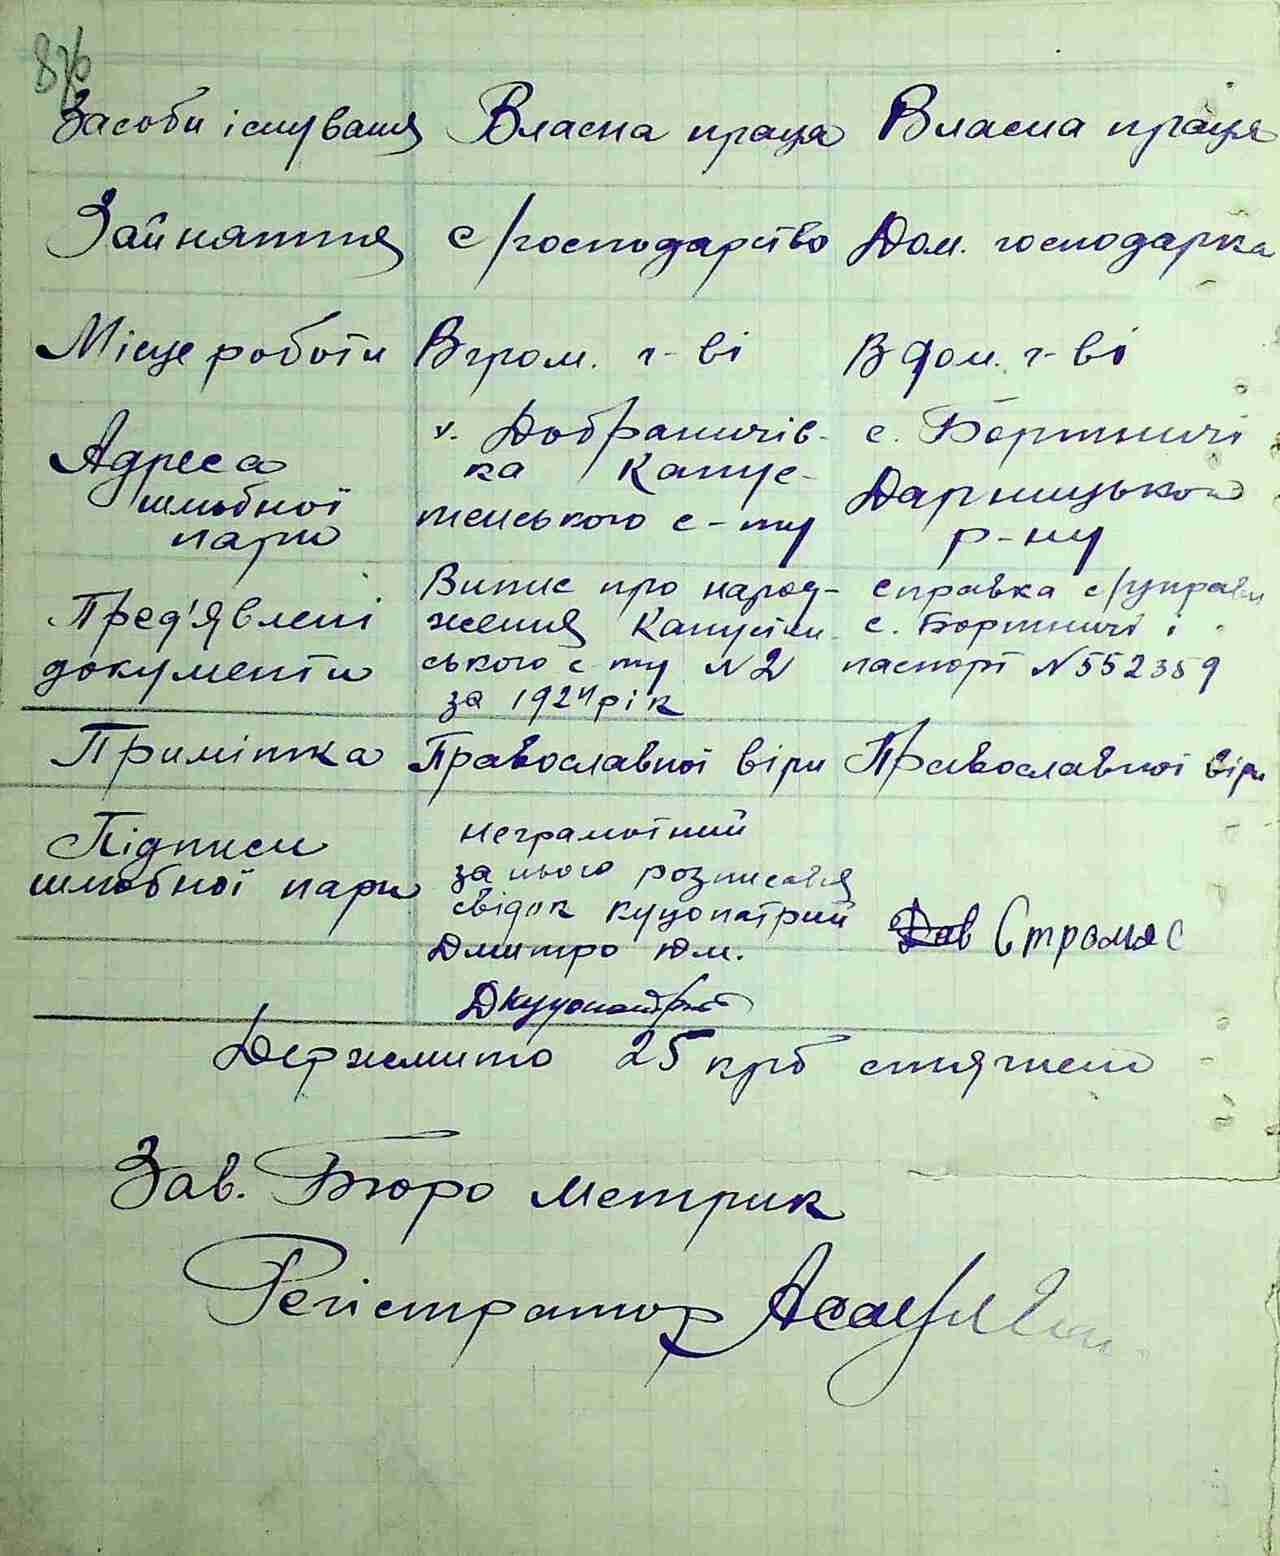 Засоби існування Власна праця Власна праця
Зайняття с/господарство Дом. господарка
Місце роботи В гром. г-ві В дом. г-ві
Адреса шлюбної пари
х. Добраничів-
ка Капус-
тенського с-ту
с. Бортничі
Дарницького
р-ну
Пред'явлені
документи
Випис про народ-
ження Капустин
ського с-ту N 2
за 1924 рік
Справка с/управи
с. Бортничі і
паспорт N 552359
Примітка Православної віри Православної віри
Підписи
шлюбної пари
неграмотний
за нього розписався
свідок Куцопатрий
Дмитро Юм.
ДКуцопатрий
Стромяс
Держмито 25 крб стягнено
Зав. Бюро метрик
Регістратор